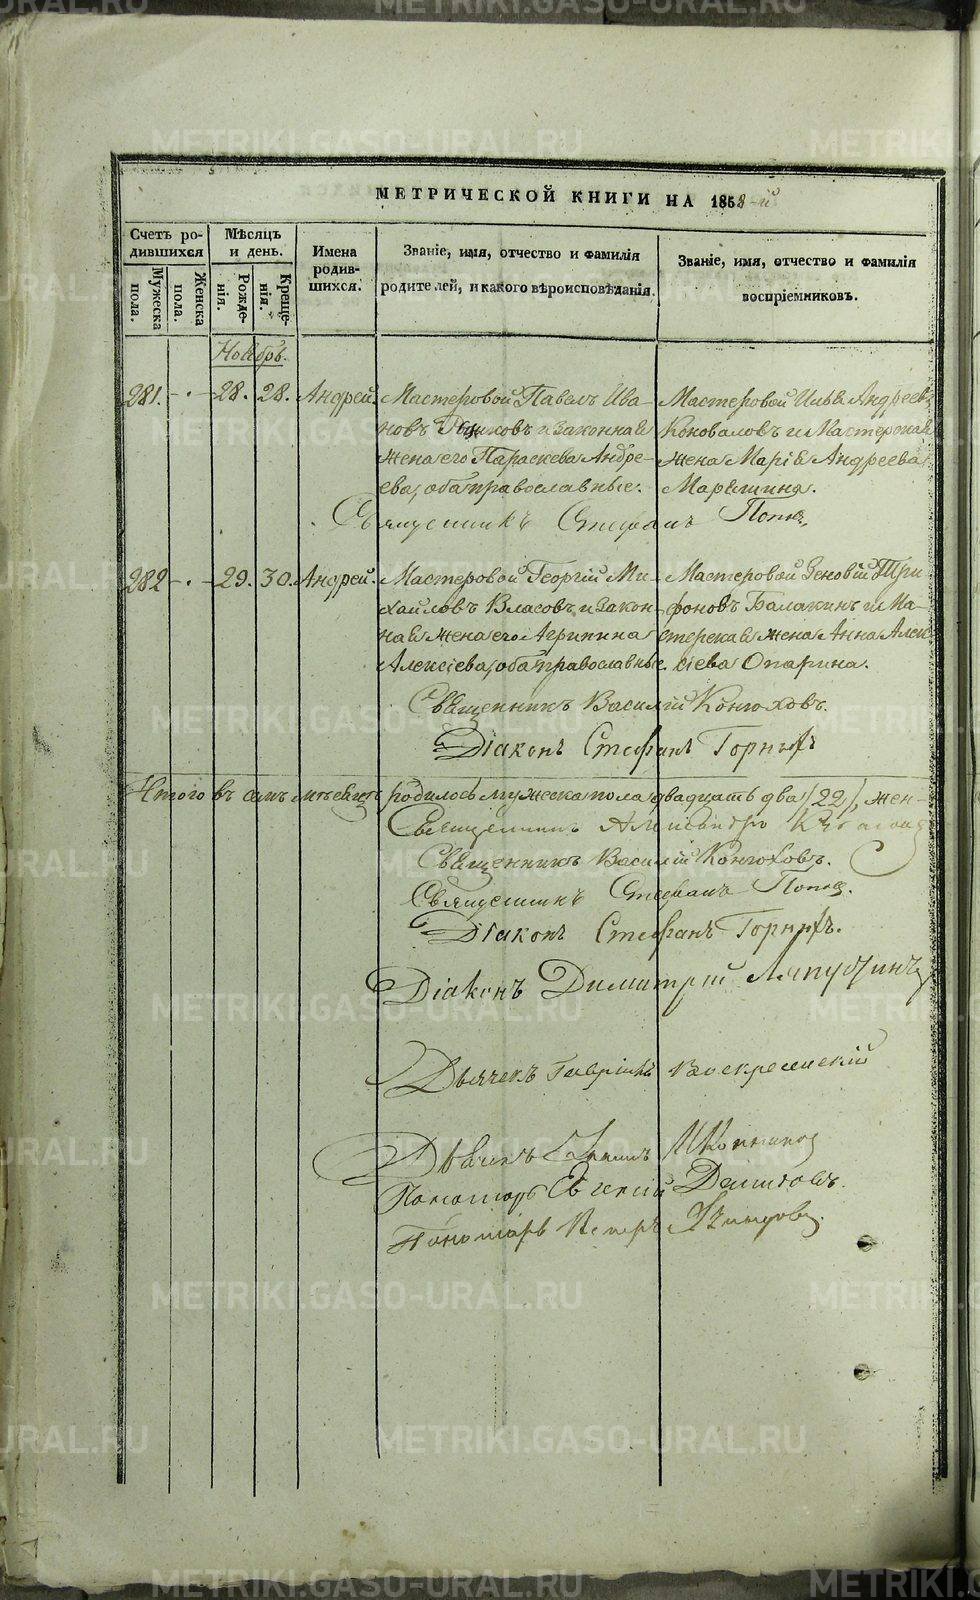 МЕТРИЧЕСКОЙ КНИГИ НА 1858-й
Счетъ ро-
дившихся
Мужеска
пола.
Женска
пола.
Мѣсяцъ
и день.
Рожде-
нія.
Креще-
нія.
Имена
родив-
шихся.
Званіе, имя, отчество и фамилія
родителей, и какого вѣроисповѣданія.
Званіе, имя, отчество и фамилія
воспріемниковъ.
Ноябрь.
281. - · - 28. 28. Андрей. Мастеровой Павелъ Ива-
новъ и законная
жена его Параскева Андре-
ева, оба православные.
Мастеровой Илья Андреевъ
Коноваловъ и Мастерская
жена Марія Андреева
Марьшина.
Священникъ Стефанъ Поповъ
282 - · - 29. 30. Андрей. Мастеровой Георгій Ми-
хайловъ Власовъ и закон-
ная жена его Агрипина
Алексіева, оба православные.
Мастеровой Зеновій Три-
фоновъ Балакинъ и Ма-
стерская жена Анна Алек-
сіева Опарина.
Священникъ Василій Конюховъ.
Діаконъ Стефанъ Горныхъ
Итого въ семъ месяцѣ родилось мужеска пола двадцать два /22/, жен-
Священникъ Александръ
Священникъ Василій Конюховъ.
Священникъ Стефанъ Поповъ.
Діаконъ Стефанъ Горныхъ.
Діаконъ Димитрій Ляпустинъ
Дьячекъ Гавріилъ Воскресенскій
Дьячекъ
Пономарь Евгеній
Пономарь Петръ
METRIKI.GASO-URAL.RU